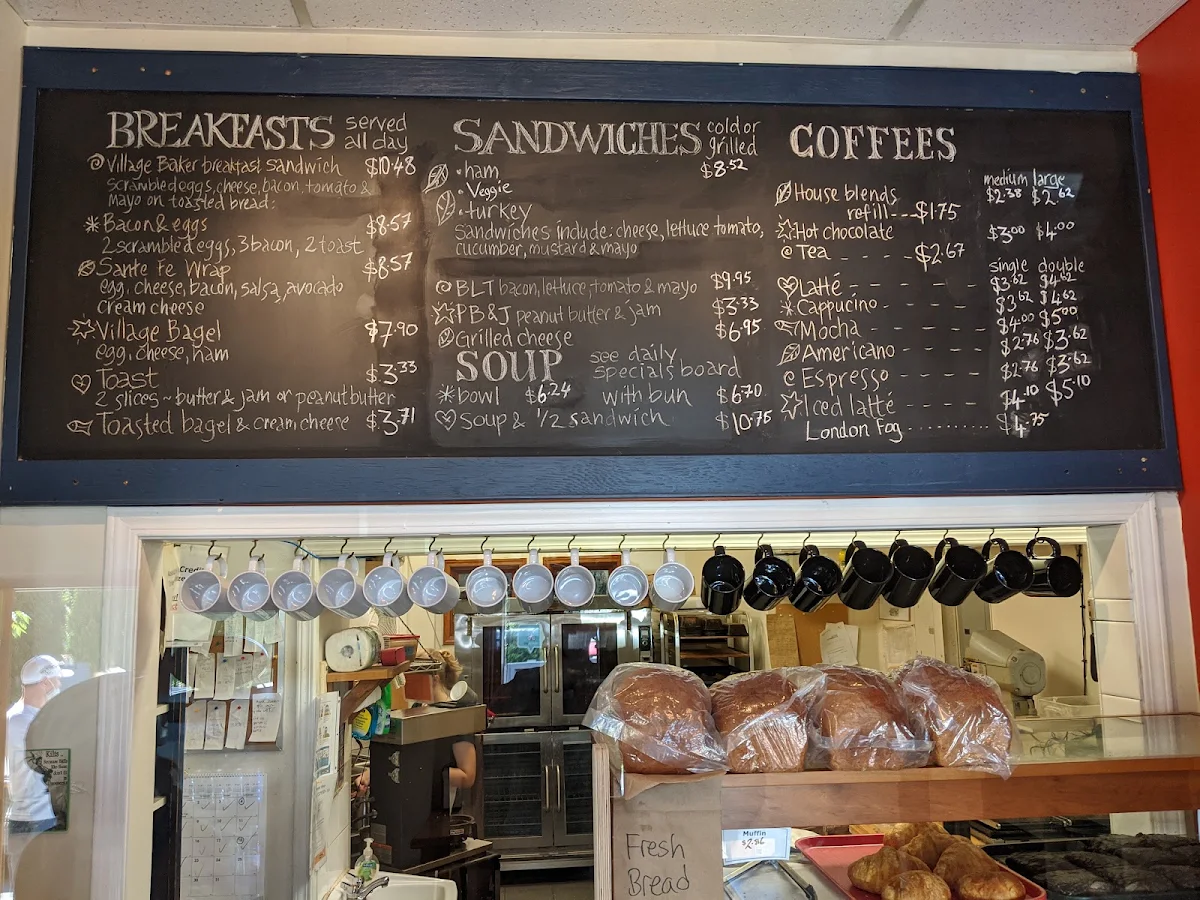 BREAKFASTS served
all day
Village Baker breakfast sandwich $10.48
scrambled eggs, cheese, bacon, tomato &
mayo on toasted bread.
Bacon & eggs $8.57
2 scrambled eggs, 3 bacon, 2 toast
Sante Fe Wrap $8.57
egg, cheese, bacon, salsa, avocado
cream cheese
Village Bagel $7.90
egg, cheese, ham
Toast $3.33
2 slices ~ butter & jam or peanut butter
Toasted bagel & cream cheese $3.71
SANDWICHES cold or
grilled
$8.52
• ham
• Veggie
• turkey
Sandwiches include: cheese, lettuce tomato,
cucumber, mustard & mayo
BLT bacon, lettuce, tomato & mayo $9.95
PB&J peanut butter & jam $3.33
Grilled cheese $6.95
SOUP see daily
specials board
bowl $6.24 with bun $6.70
Soup & 1/2 sandwich $10.75
COFFEES
medium large
House blends $2.38 $2.62
refill --- $1.75
Hot chocolate $3.00 $4.00
Tea ---- $2.67
single double
Latté $3.62 $4.62
Cappucino $3.62 $4.62
Mocha $4.00 $5.00
Americano $2.76 $3.62
Espresso $2.76 $3.62
Iced latté $4.10 $5.10
London Fog .......... $4.75
Fresh
Bread
Muffin
$2.86